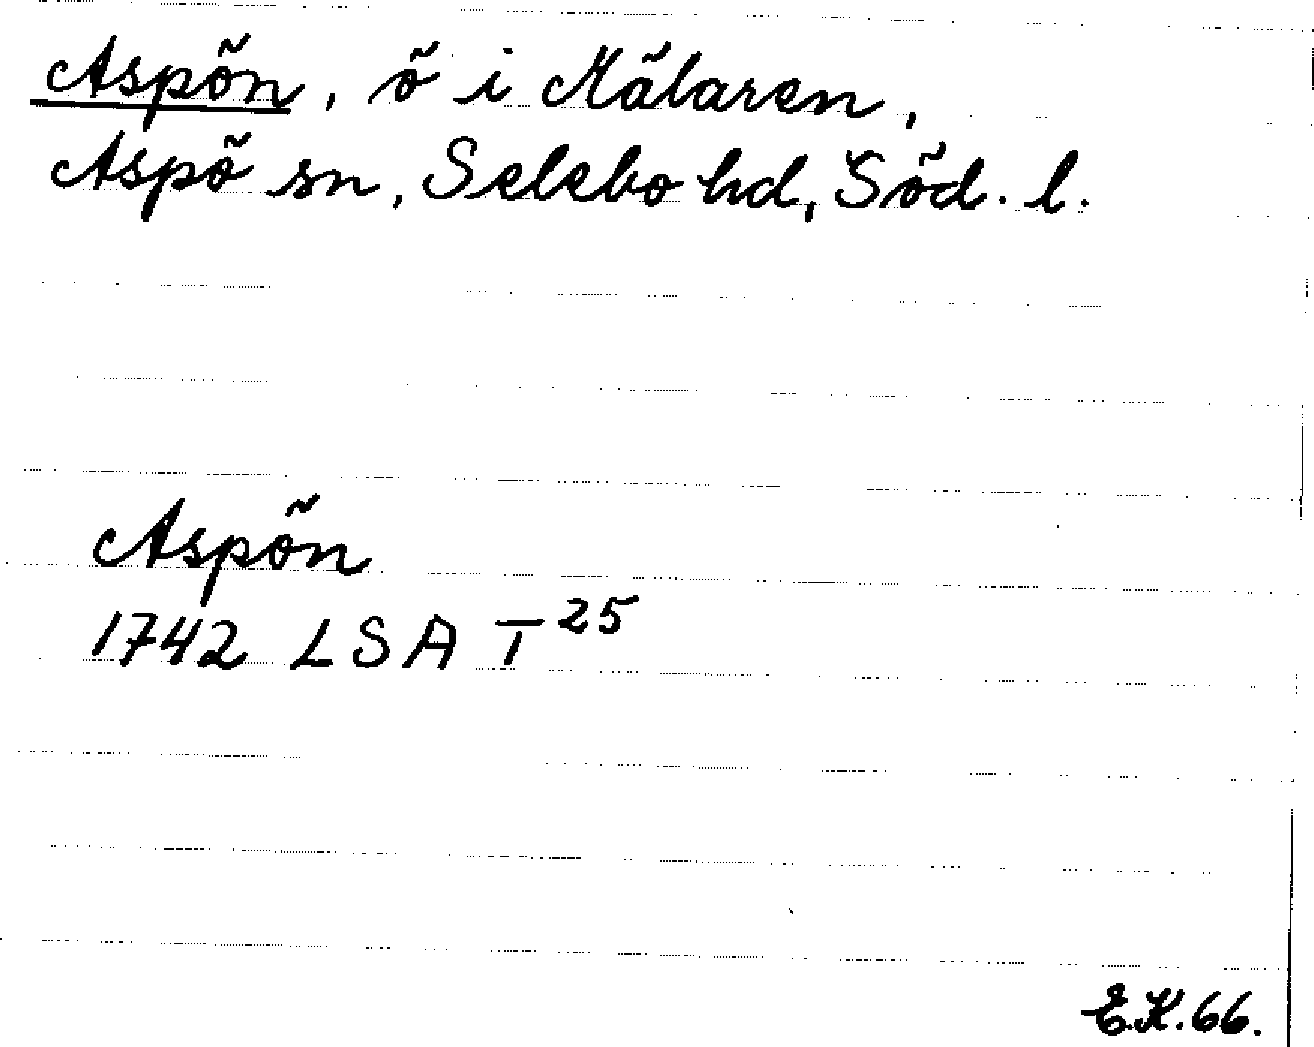 Aspön, ö i Mälaren,
Aspö sn, Selebo hd, Söd. l.
Aspön
1742 LSA T²⁵
E.K. 66.